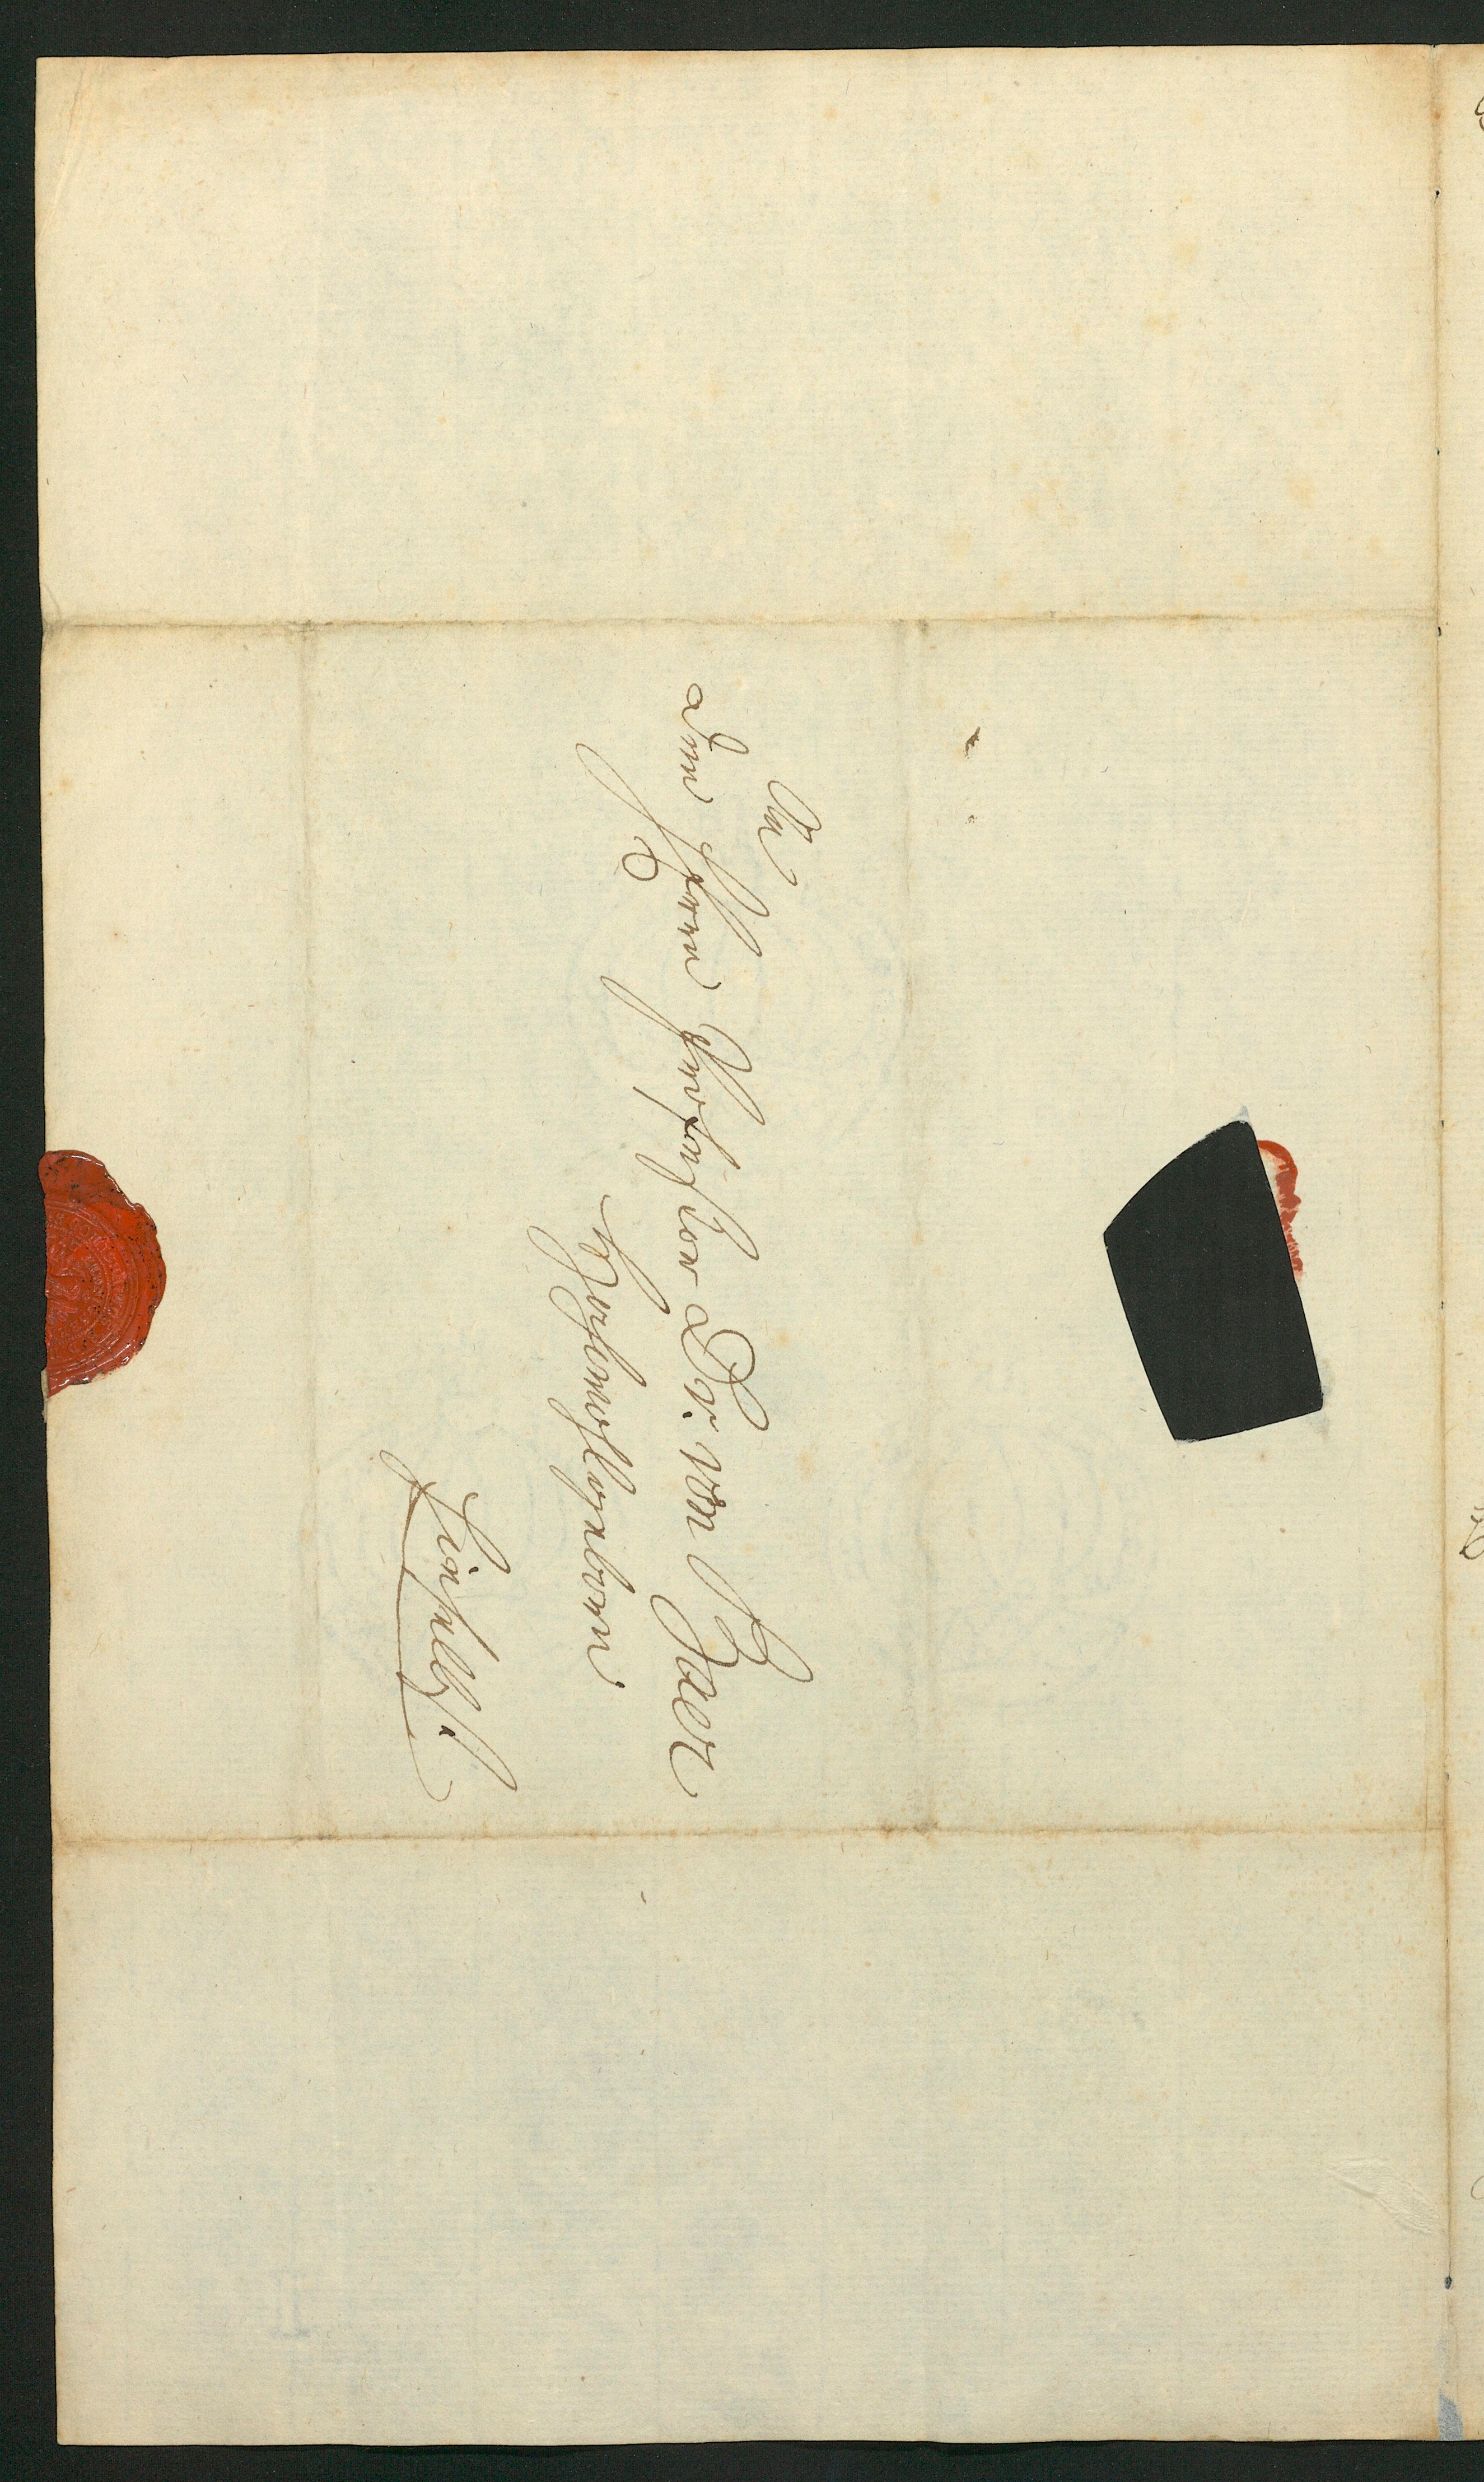 An
den Herrn Professor Dr. von Baer
Hochwohlgeboren
hieselbst.